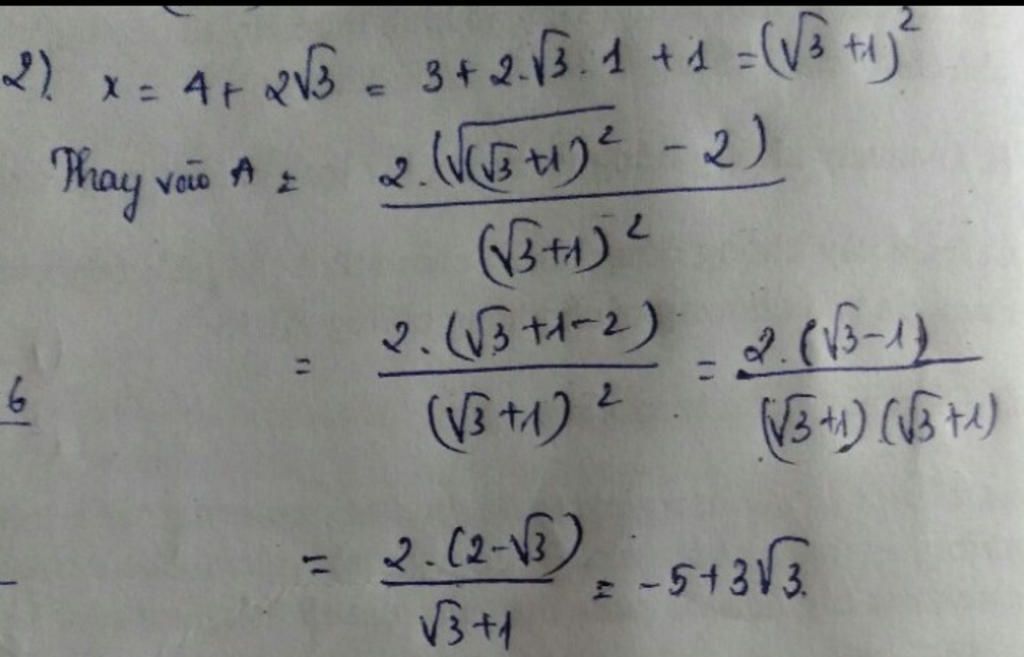 2). x = 4 + 2√3 = 3 + 2.√3.1 + 1 = (√3 + 1)²
Thay vào A = 2.(√(√3+1)² - 2) / (√3+1)²
= 2.(√3+1-2) / (√3+1)² = 2.(√3-1) / (√3+1)(√3+1)
6
= 2.(2-√3) / √3+1 = -5+3√3.